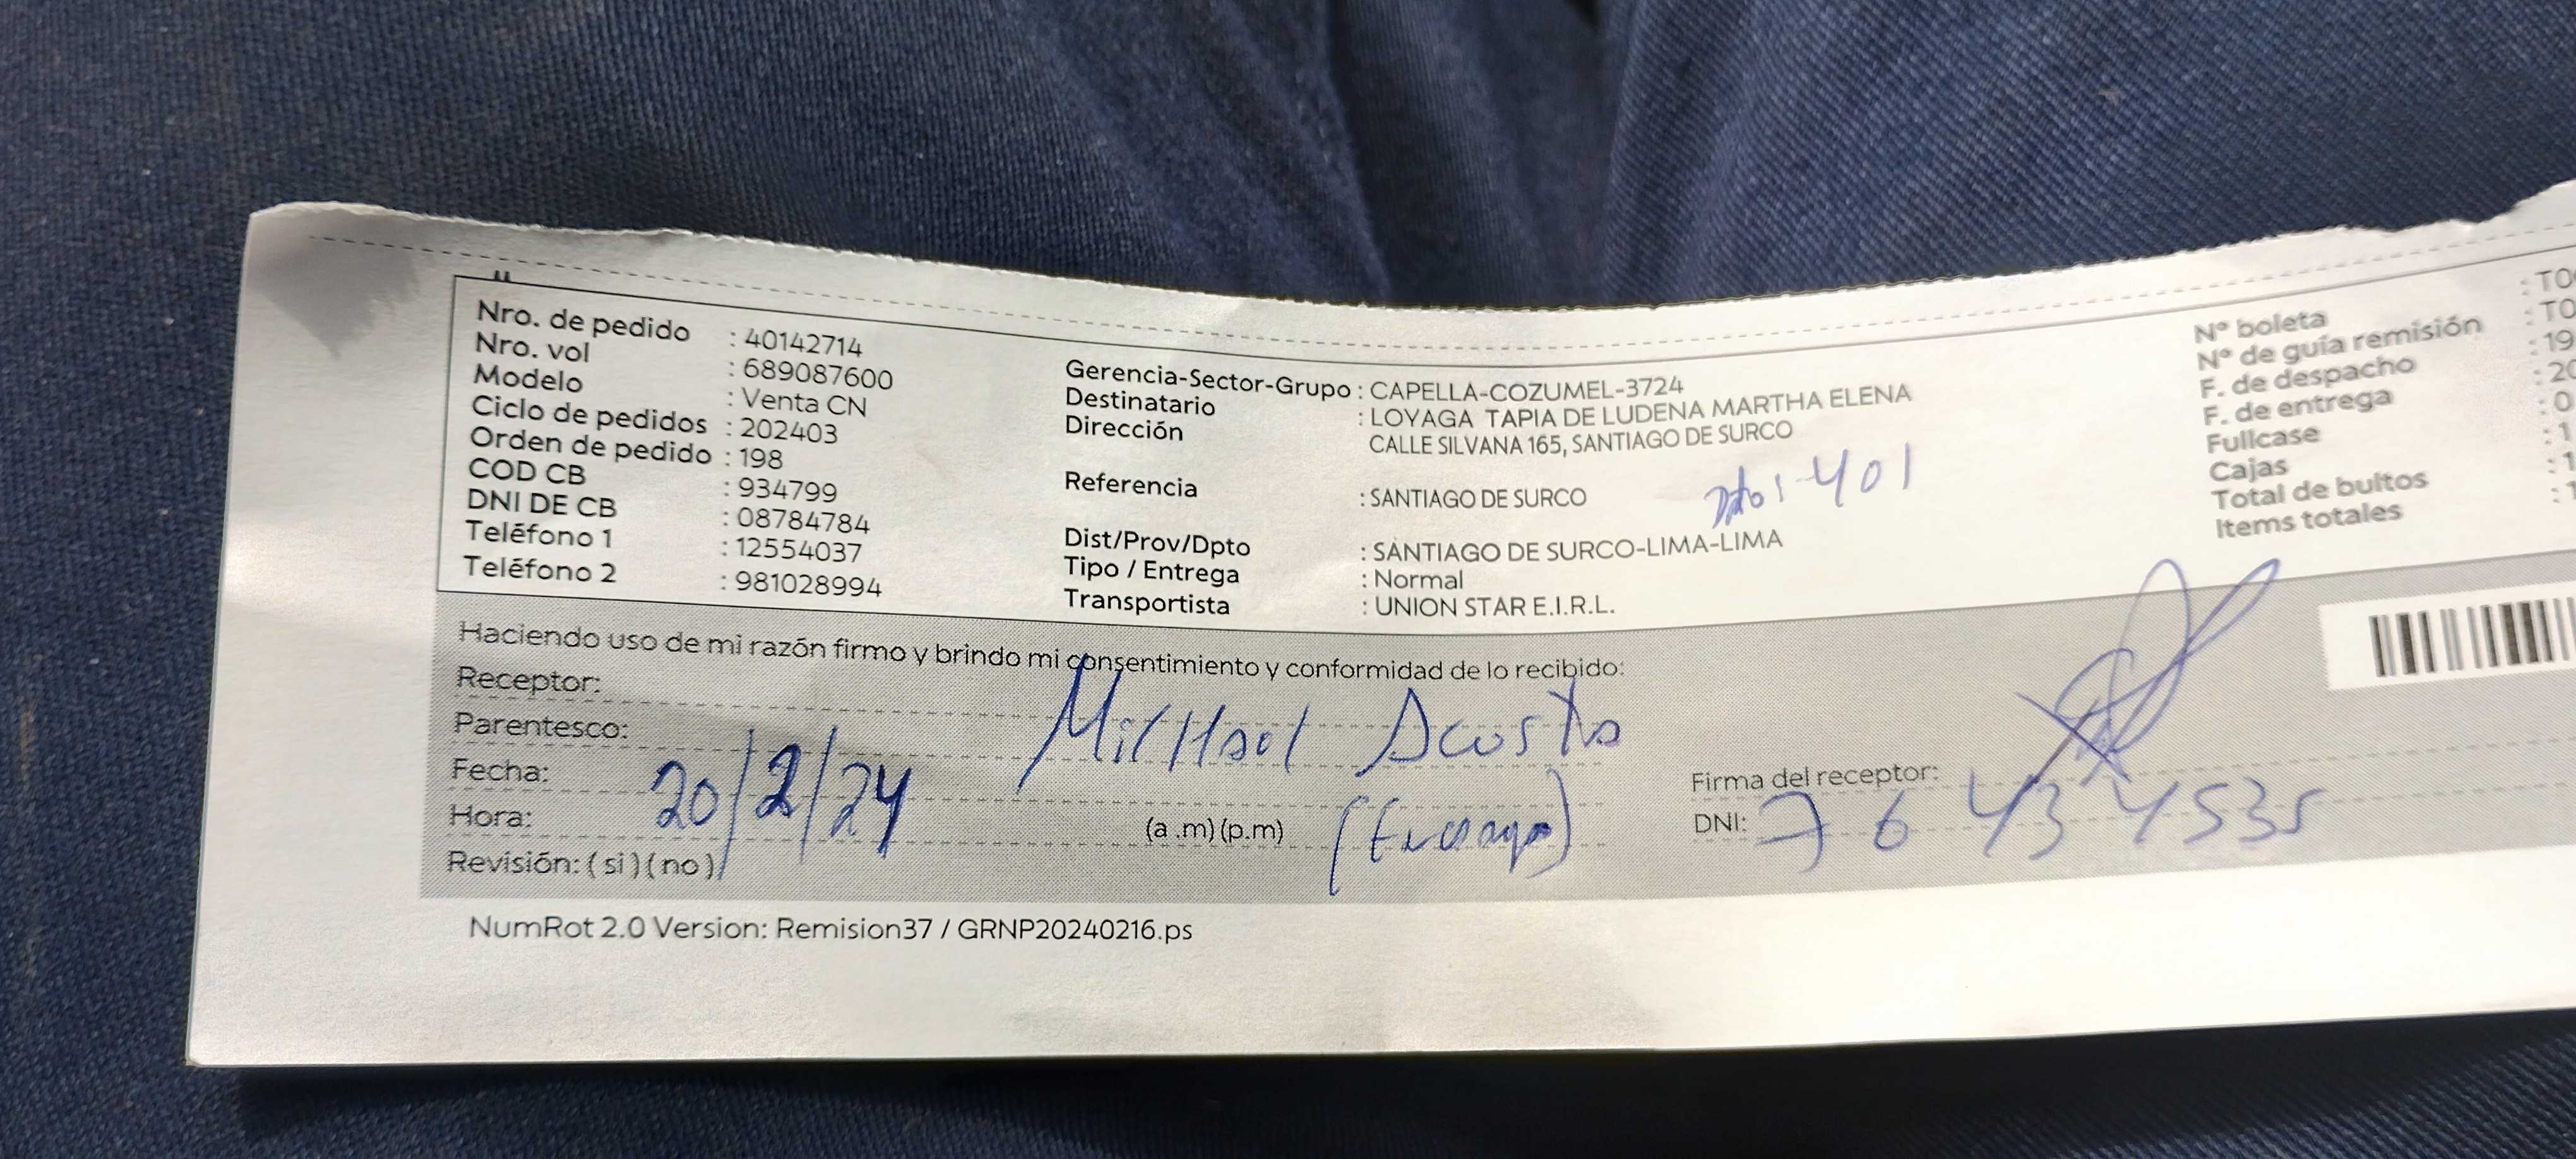 Nro. de pedido : 40142714
Nro. vol : 689087600
Modelo : Venta CN
Ciclo de pedidos : 202403
Orden de pedido : 198
COD CB : 934799
DNI DE CB : 08784784
Teléfono 1 : 12554037
Teléfono 2 : 981028994
Gerencia-Sector-Grupo : CAPELLA-COZUMEL-3724
Destinatario : LOYAGA TAPIA DE LUDENA MARTHA ELENA
Dirección CALLE SILVANA 165, SANTIAGO DE SURCO
Referencia : SANTIAGO DE SURCO
401
Dist/Prov/Dpto : SANTIAGO DE SURCO-LIMA-LIMA
Tipo / Entrega : Normal
Transportista : UNION STAR E.I.R.L.
Nº boleta : TO
Nº de guía remisión : TO
F. de despacho : 19
F. de entrega : 20
Fullcase : 0
Cajas : 1
Total de bultos : 1
Items totales : 1
Haciendo uso de mi razón firmo y brindo mi consentimiento y conformidad de lo recibido:
Receptor:
Parentesco: Acosta
Fecha: 20/2/24
Hora: (a .m) (p.m)
Revisión: ( si ) ( no )
Firma del receptor:
DNI: 76434535
NumRot 2.0 Version: Remision37 / GRNP20240216.ps